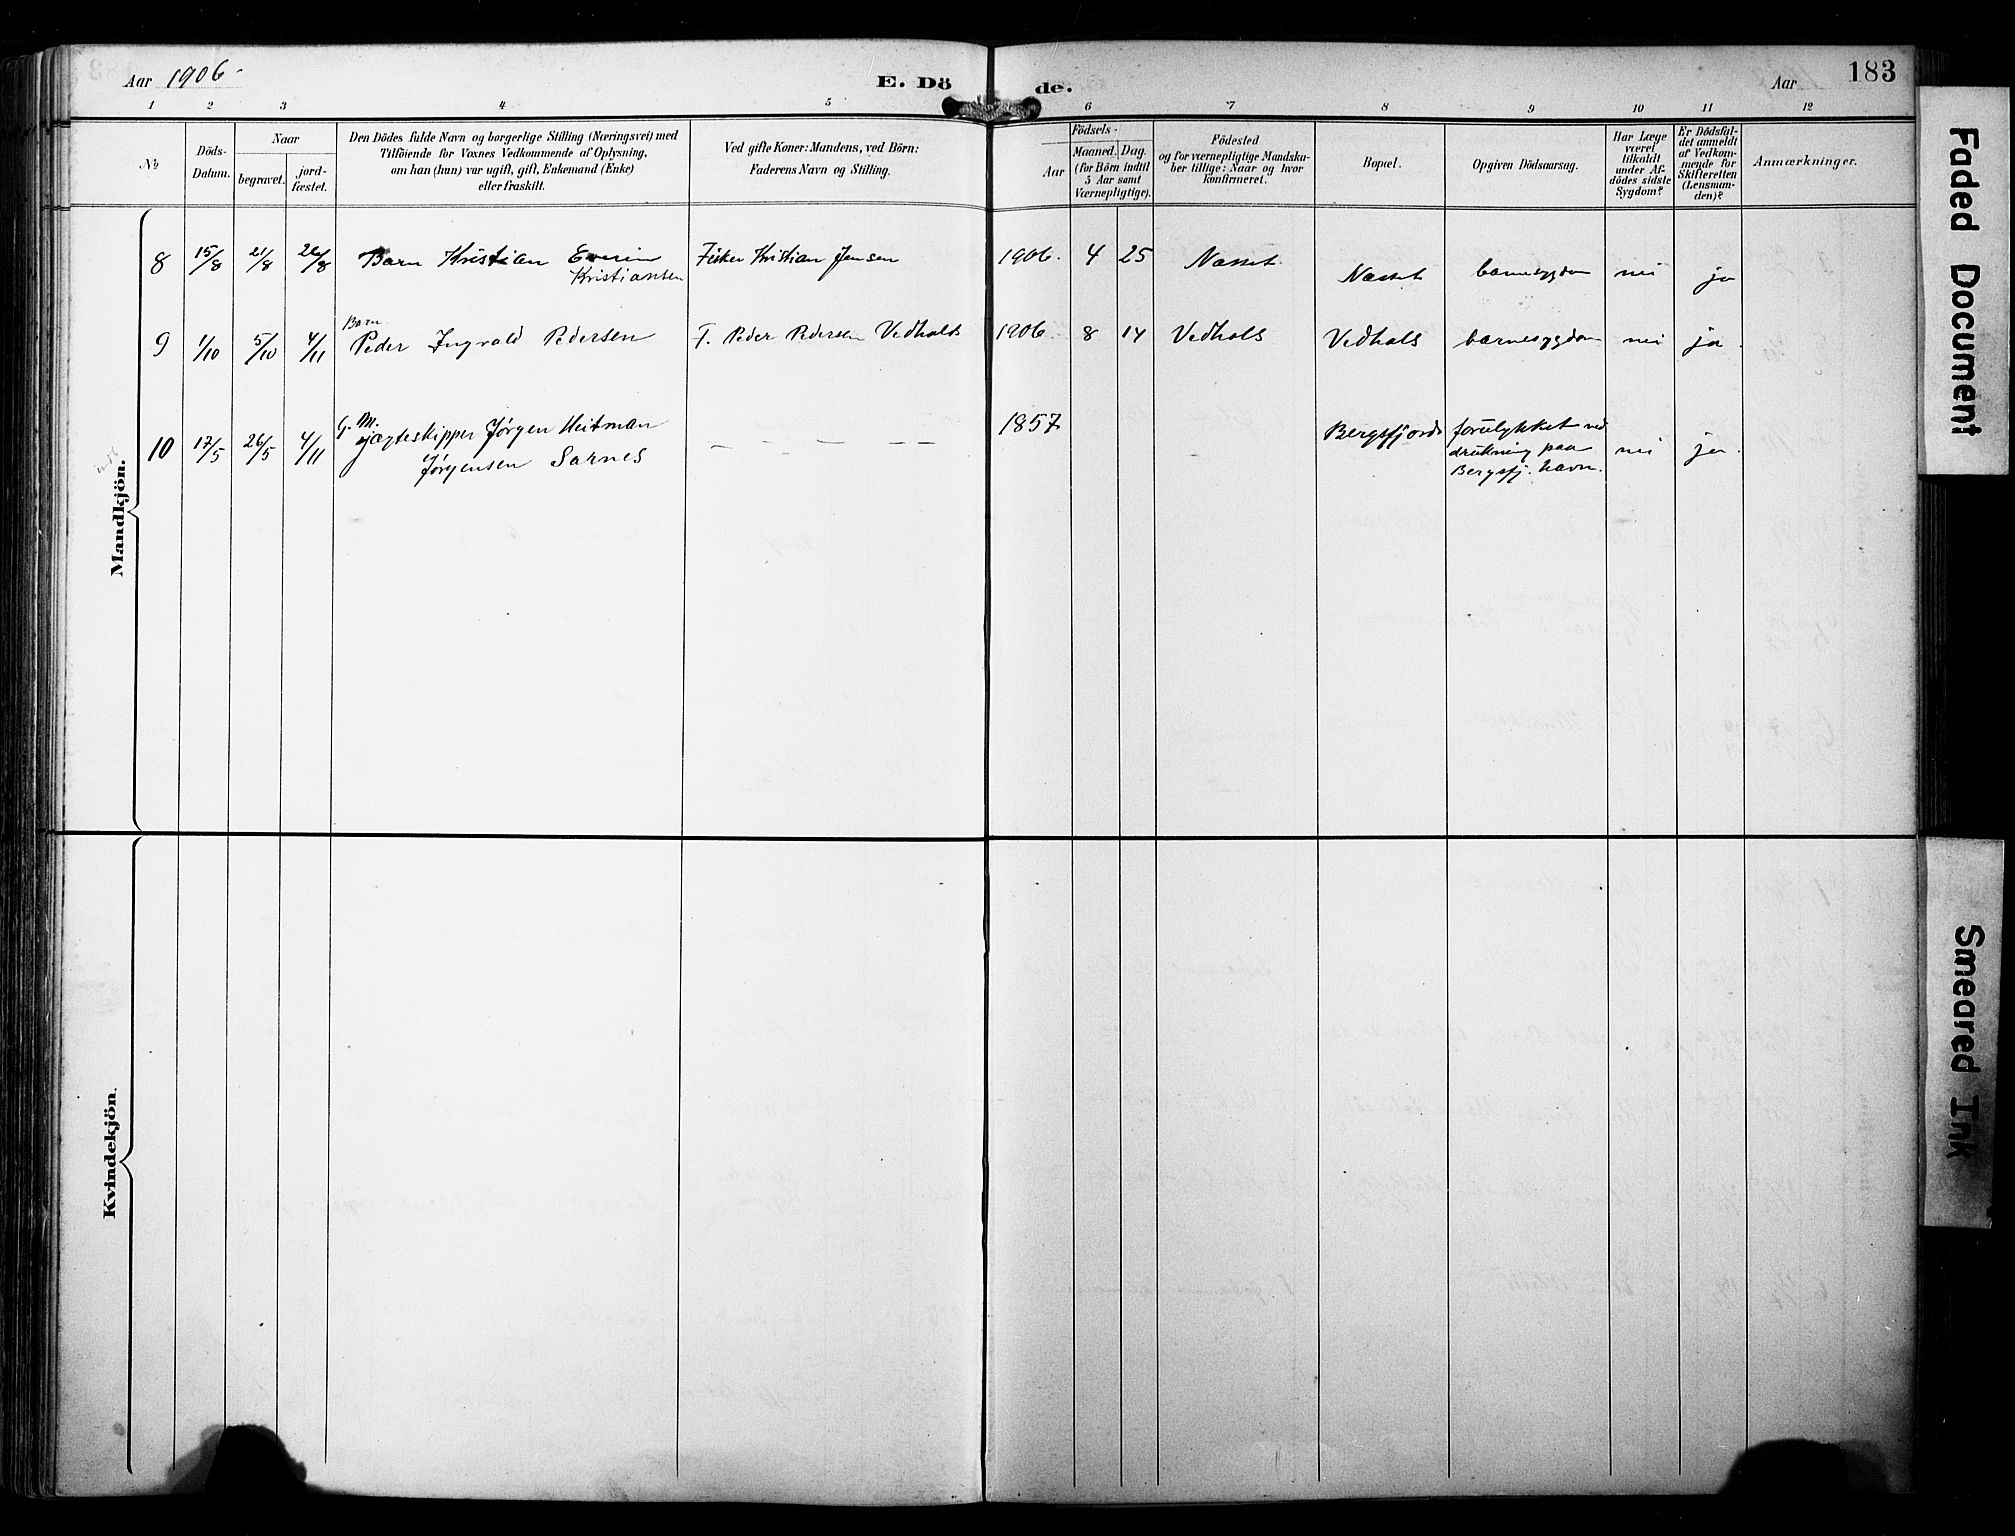 Aar 1906.
E. Döde.
Aar
183
1 2 3 4 5 6 7 8 9 10 11 12
No
Döds-
Datum.
Naar
begravet.
jord-
fæstet.
Den Dödes fulde Navn og borgerlige Stilling (Næringsvei) med
Tilföiende for Voxnes Vedkommende af Oplysning,
om han (hun) var ugift, gift, Enkemand (Enke)
eller fraskilt.
Ved gifte Koner: Mandens, ved Börn:
Faderens Navn og Stilling.
Födsels-
Aar
Maaned. Dag.
(for Börn indtil
5 Aar samt
Værnepligtige).
Födested
og for værnepligtige Mandska-
ber tillige: Naar og hvor
konfirmeret.
Bopæl.
Opgiven Dödsaarsag.
Har Læge
været
tilkaldt
under Af-
dödes sidste
Sygdom?
Er Dödsfal-
det anmeldt
af Vedkom-
mende for
Skifteretten
(Lensman-
den)?
Anmærkninger.
Mandkjön.
8 15/8 21/8 26/8 Barn Kristian
Kristiansen
Fisker Kristian Jensen 1906. 4 25 Næsset Næsset barnesygdom nei ja
Barn
9 1/10 5/10 4/11 Peder Ingvald Pedersen F. Peder Pedersen Vedhols 1906. 8 14 Vedhols Vedhols barnesygdom nei ja.
10 17/5 26/5 4/11 G. M. jagteskipper Jørgen Heitman
Jørgensen Sarnes
– – – – –
1857 Bergsfjord forulykket ved
drukning paa
Bergsfj. havn.
nei ja.
Kvindekjön.
Faded Document
Smeared Ink